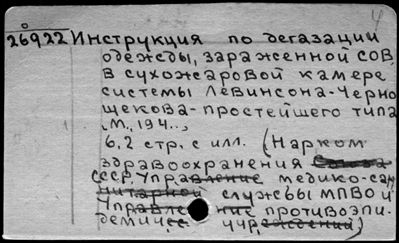 4
26922 Инструкция по дегазации
одежды, зараженной СОВ,
в сухожаровой камере
системы Левинсона-Черно
щекова-простейшего типа
М., 194..,
6,2 стр. с илл. (Нарком
здравоохранения Союза
СССР. Управление медико-сан
нитарной службы МПВО и
Управление противоэпи-
демичес учреждений)